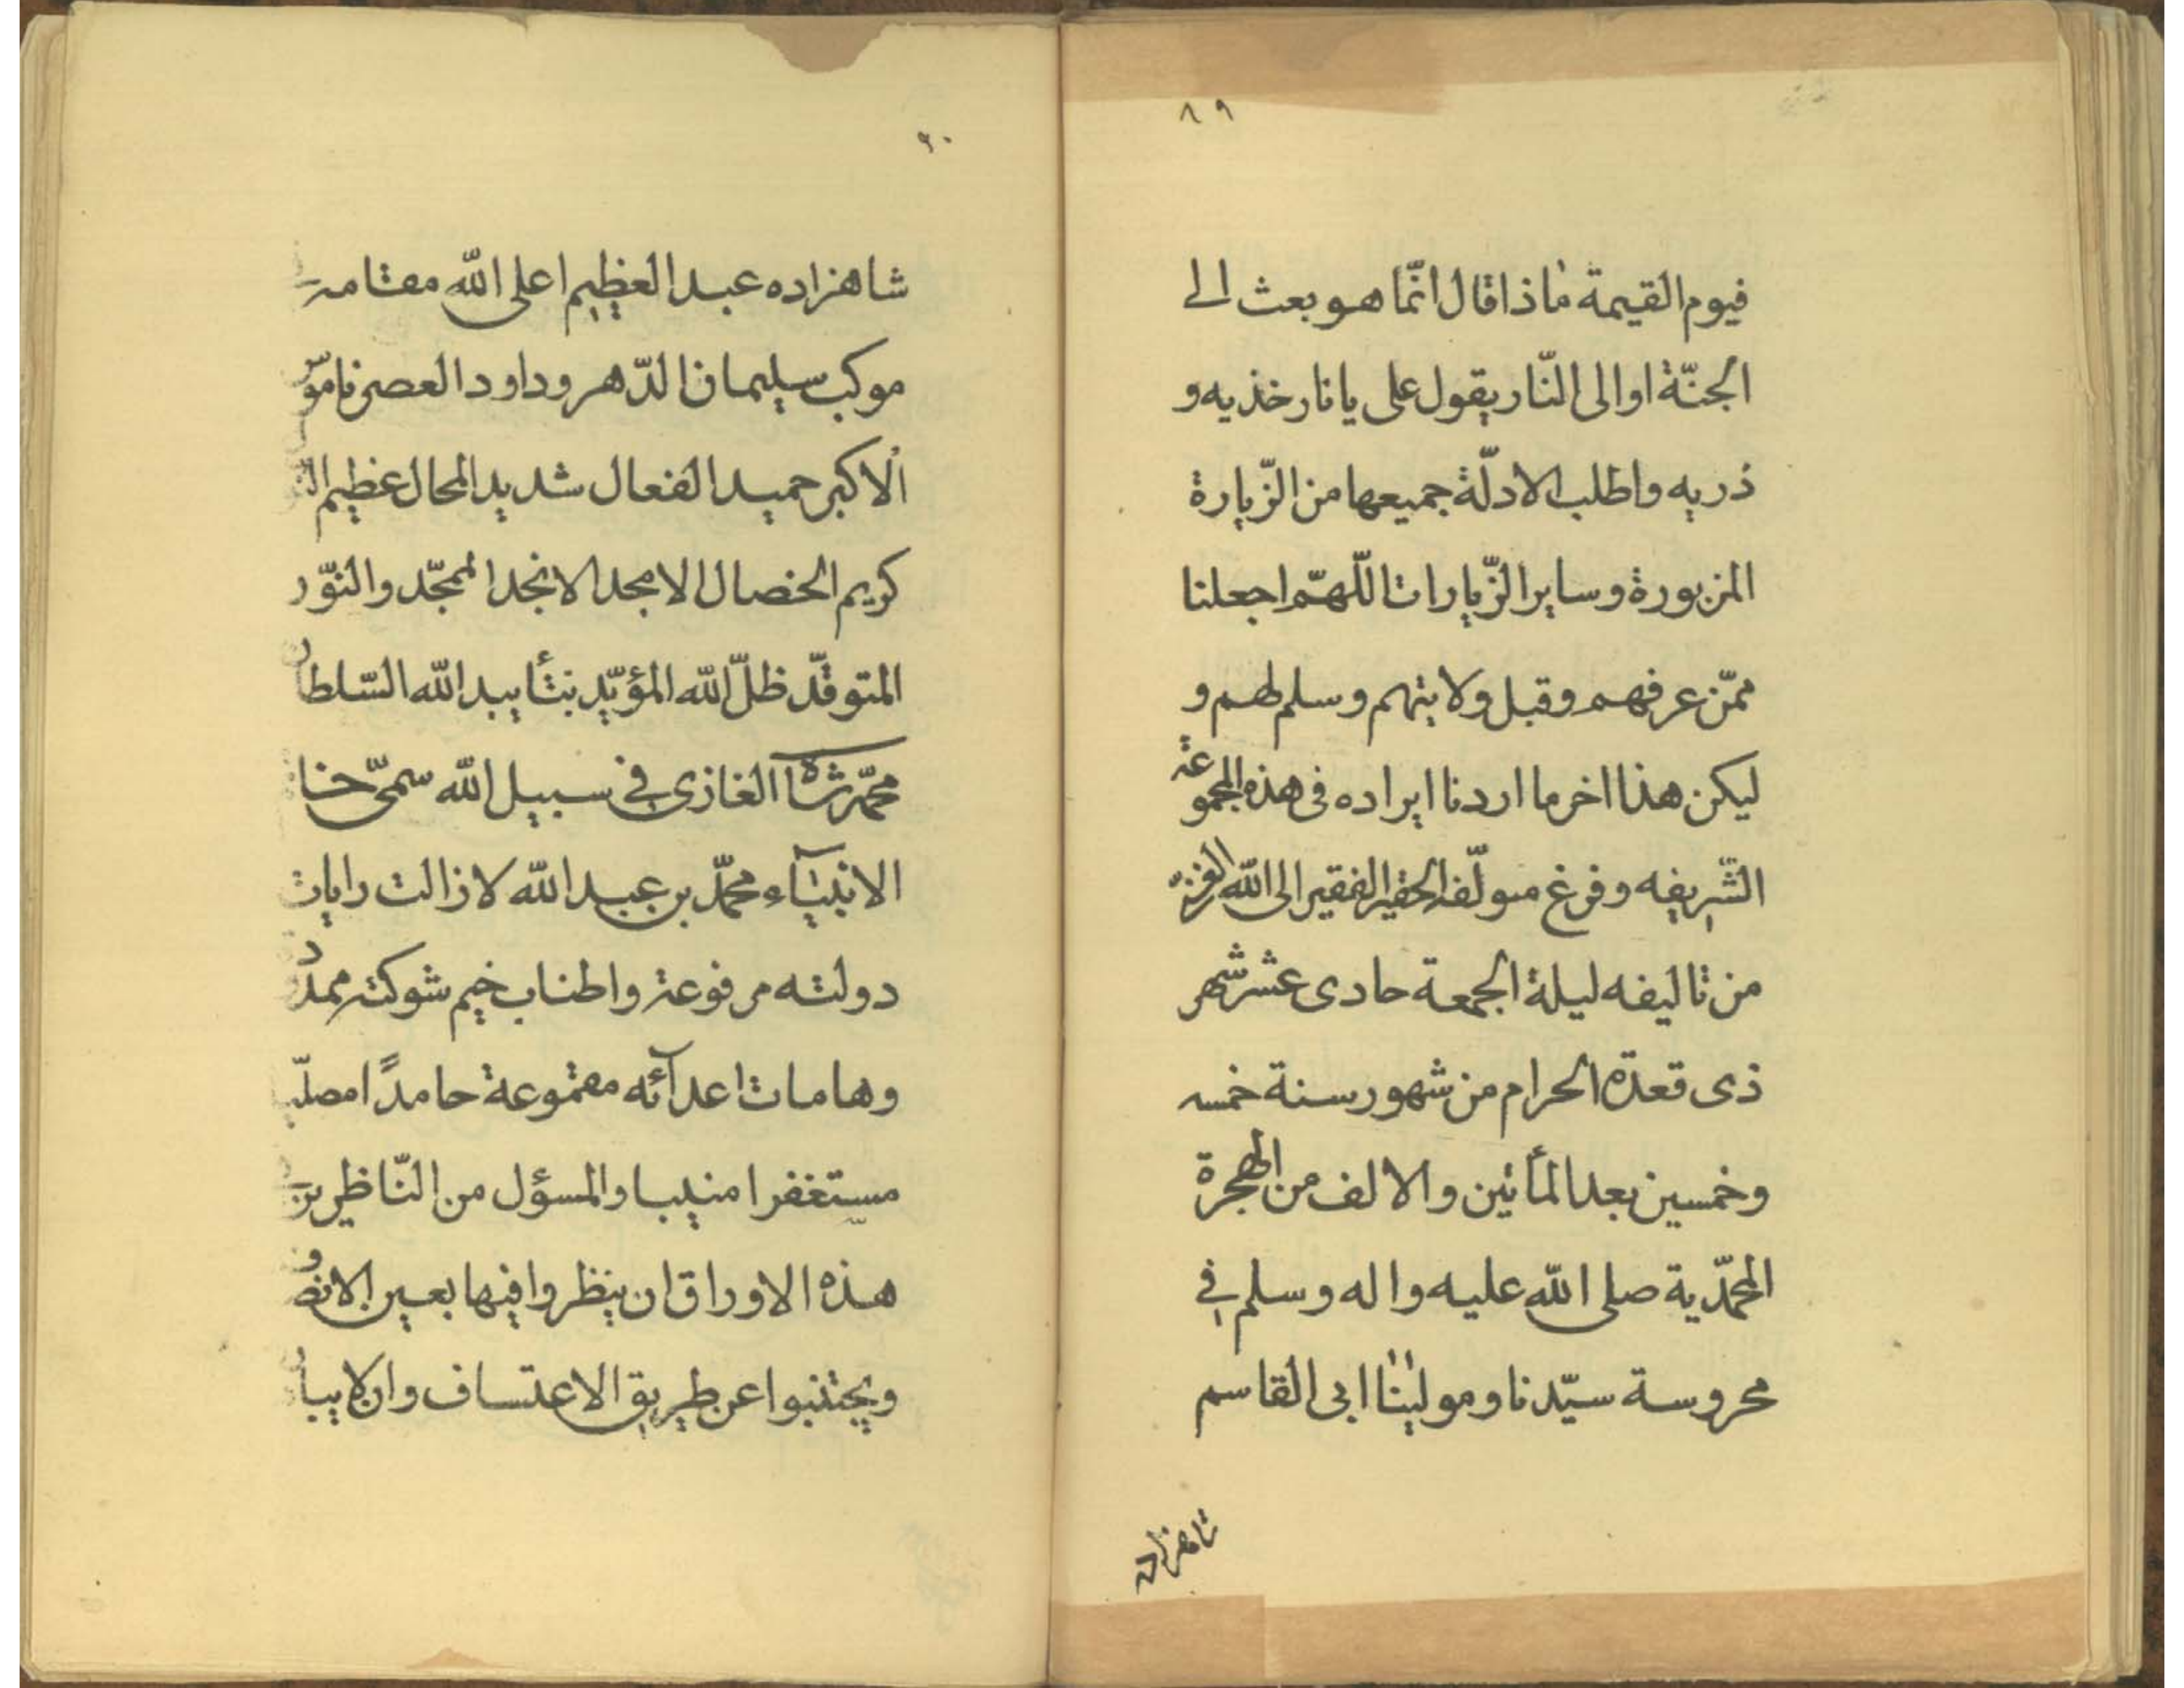 ٨٩
فيوم القيمة ماذا قال انّما هو بعث الى
الجنّة او الى النّار يقول على يا نار خذيه و
ذريه واطلب الادلّة جميعها من الزّيارة
المزبورة وساير الزّيارات اللّهمّ اجعلنا
ممّن عرفهم وقبل ولايتهم وسلم لهم و
ليكن هذا اخر ما اردنا ايراده فى هذه المجموعة
الشّريفه وفرغ مولّفه الحقير الفقير الى الله
من تاليفه ليلة الجمعة حادى عشر شهر
ذى قعدة الحرام من شهور سنة خمسه
وخمسين بعد المأئين والالف من الهجرة
المحمّدية صلى الله عليه واله وسلم في
محروسة سيّدنا ومولينا ابى القاسم
شاهزاده
٩٠
شاهزاده عبد العظيم اعلى الله مقامه
موكب سليمان الدّهر وداود العصر ناموس
الاكبر حميد الفعال شديد المحال عظيم
كريم الخصال الامجد الانجد الممجّد والنّور
المتوقّد ظلّ الله المؤيّد بتأييد الله السّلطان
محمّد شاه الغازى في سبيل الله سمىّ خاتم
الانبيآء محمّد بن عبد الله لا زالت رايات
دولته مرفوعة واطناب خيم شوكته ممدودة
وهامات اعدآئه مقموعة حامدًا مصلّيا
مستغفرا منيبا والمسؤل من النّاظرين
هذه الاوراق ان ينظروا فيها بعين الانصاف
ويجتنبوا عن طريق الاعتساف وان لا